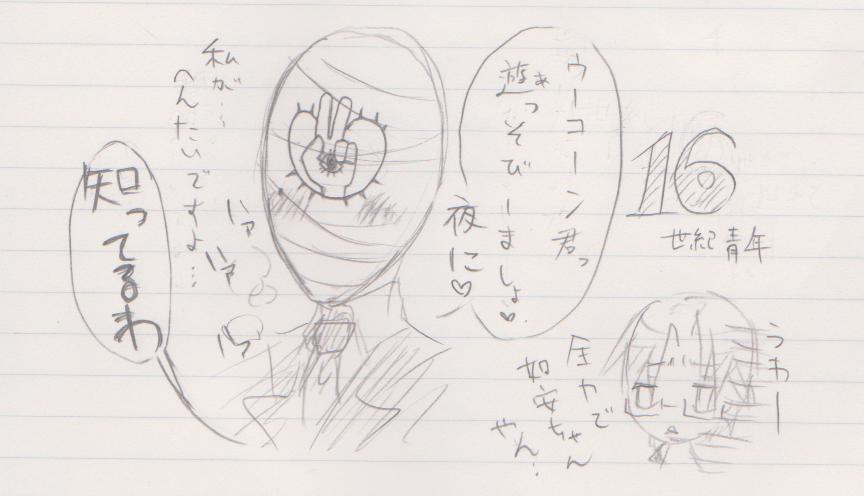 16
世紀青年
ウーコーン君っ
遊ぁっそびーましょ♥
夜に♡
私が…
へんたいですよ…
ハァ
ハァ
ハァ
知ってるわ
うわー
全力で
如安ちゃん
やん…